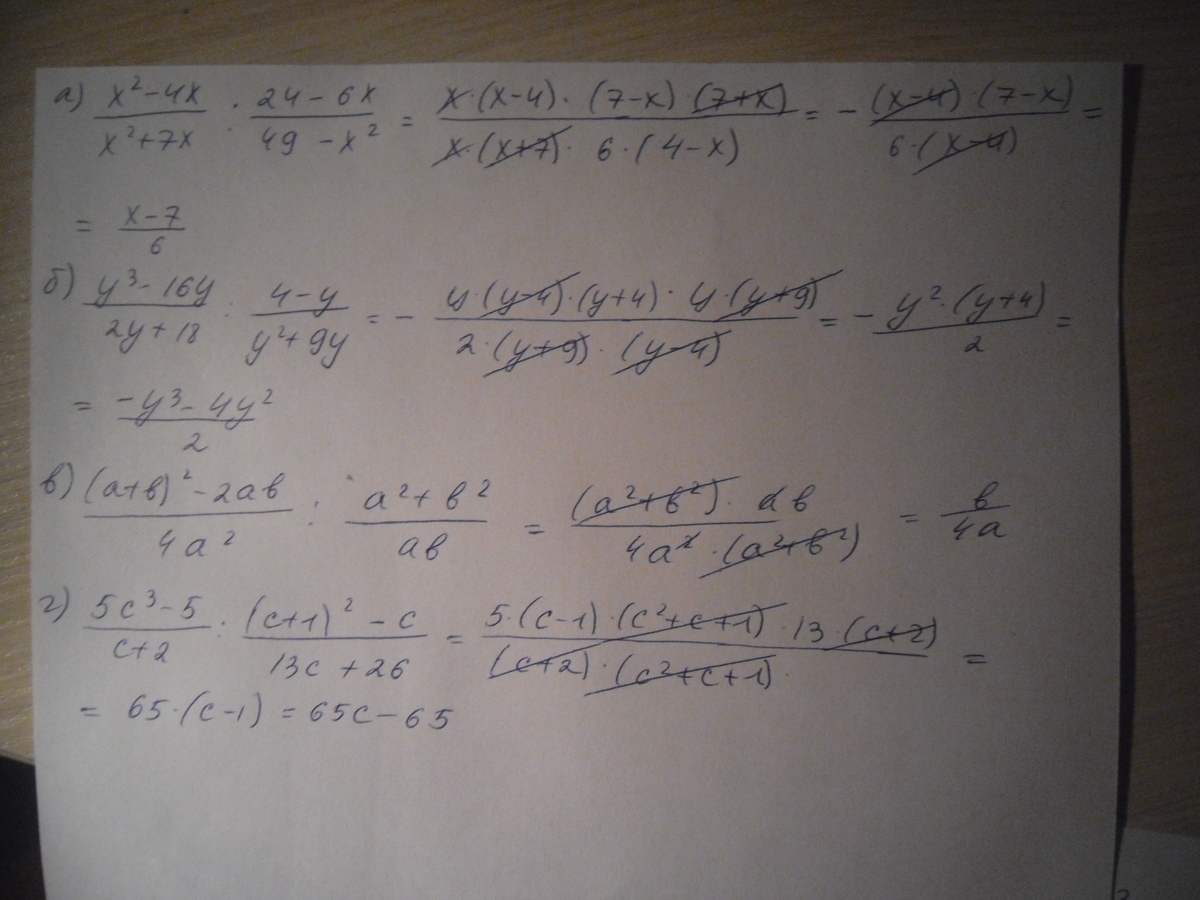 а) (x²-4x)/(x²+7x) : (24-6x)/(49-x²) = (x·(x-4)·(7-x)·(7+x))/(x·(x+7)·6·(4-x)) = -((x-4)·(7-x))/(6·(x-4)) =
= (x-7)/6
б) (y³-16y)/(2y+18) : (4-y)/(y²+9y) = -(y·(y-4)·(y+4)·y·(y+9))/(2·(y+9)·(y-4)) = -(y²·(y+4))/2 =
= (-y³-4y²)/2
в) ((a+в)²-2aв)/(4a²) : (a²+в²)/(aв) = ((a²+в²)·aв)/(4a²·(a²+в²)) = в/(4a)
г) (5c³-5)/(c+2) : ((c+1)²-c)/(13c+26) = (5·(c-1)·(c²+c+1)·13·(c+2))/((c+2)·(c²+c+1)) =
= 65·(c-1) = 65c-65